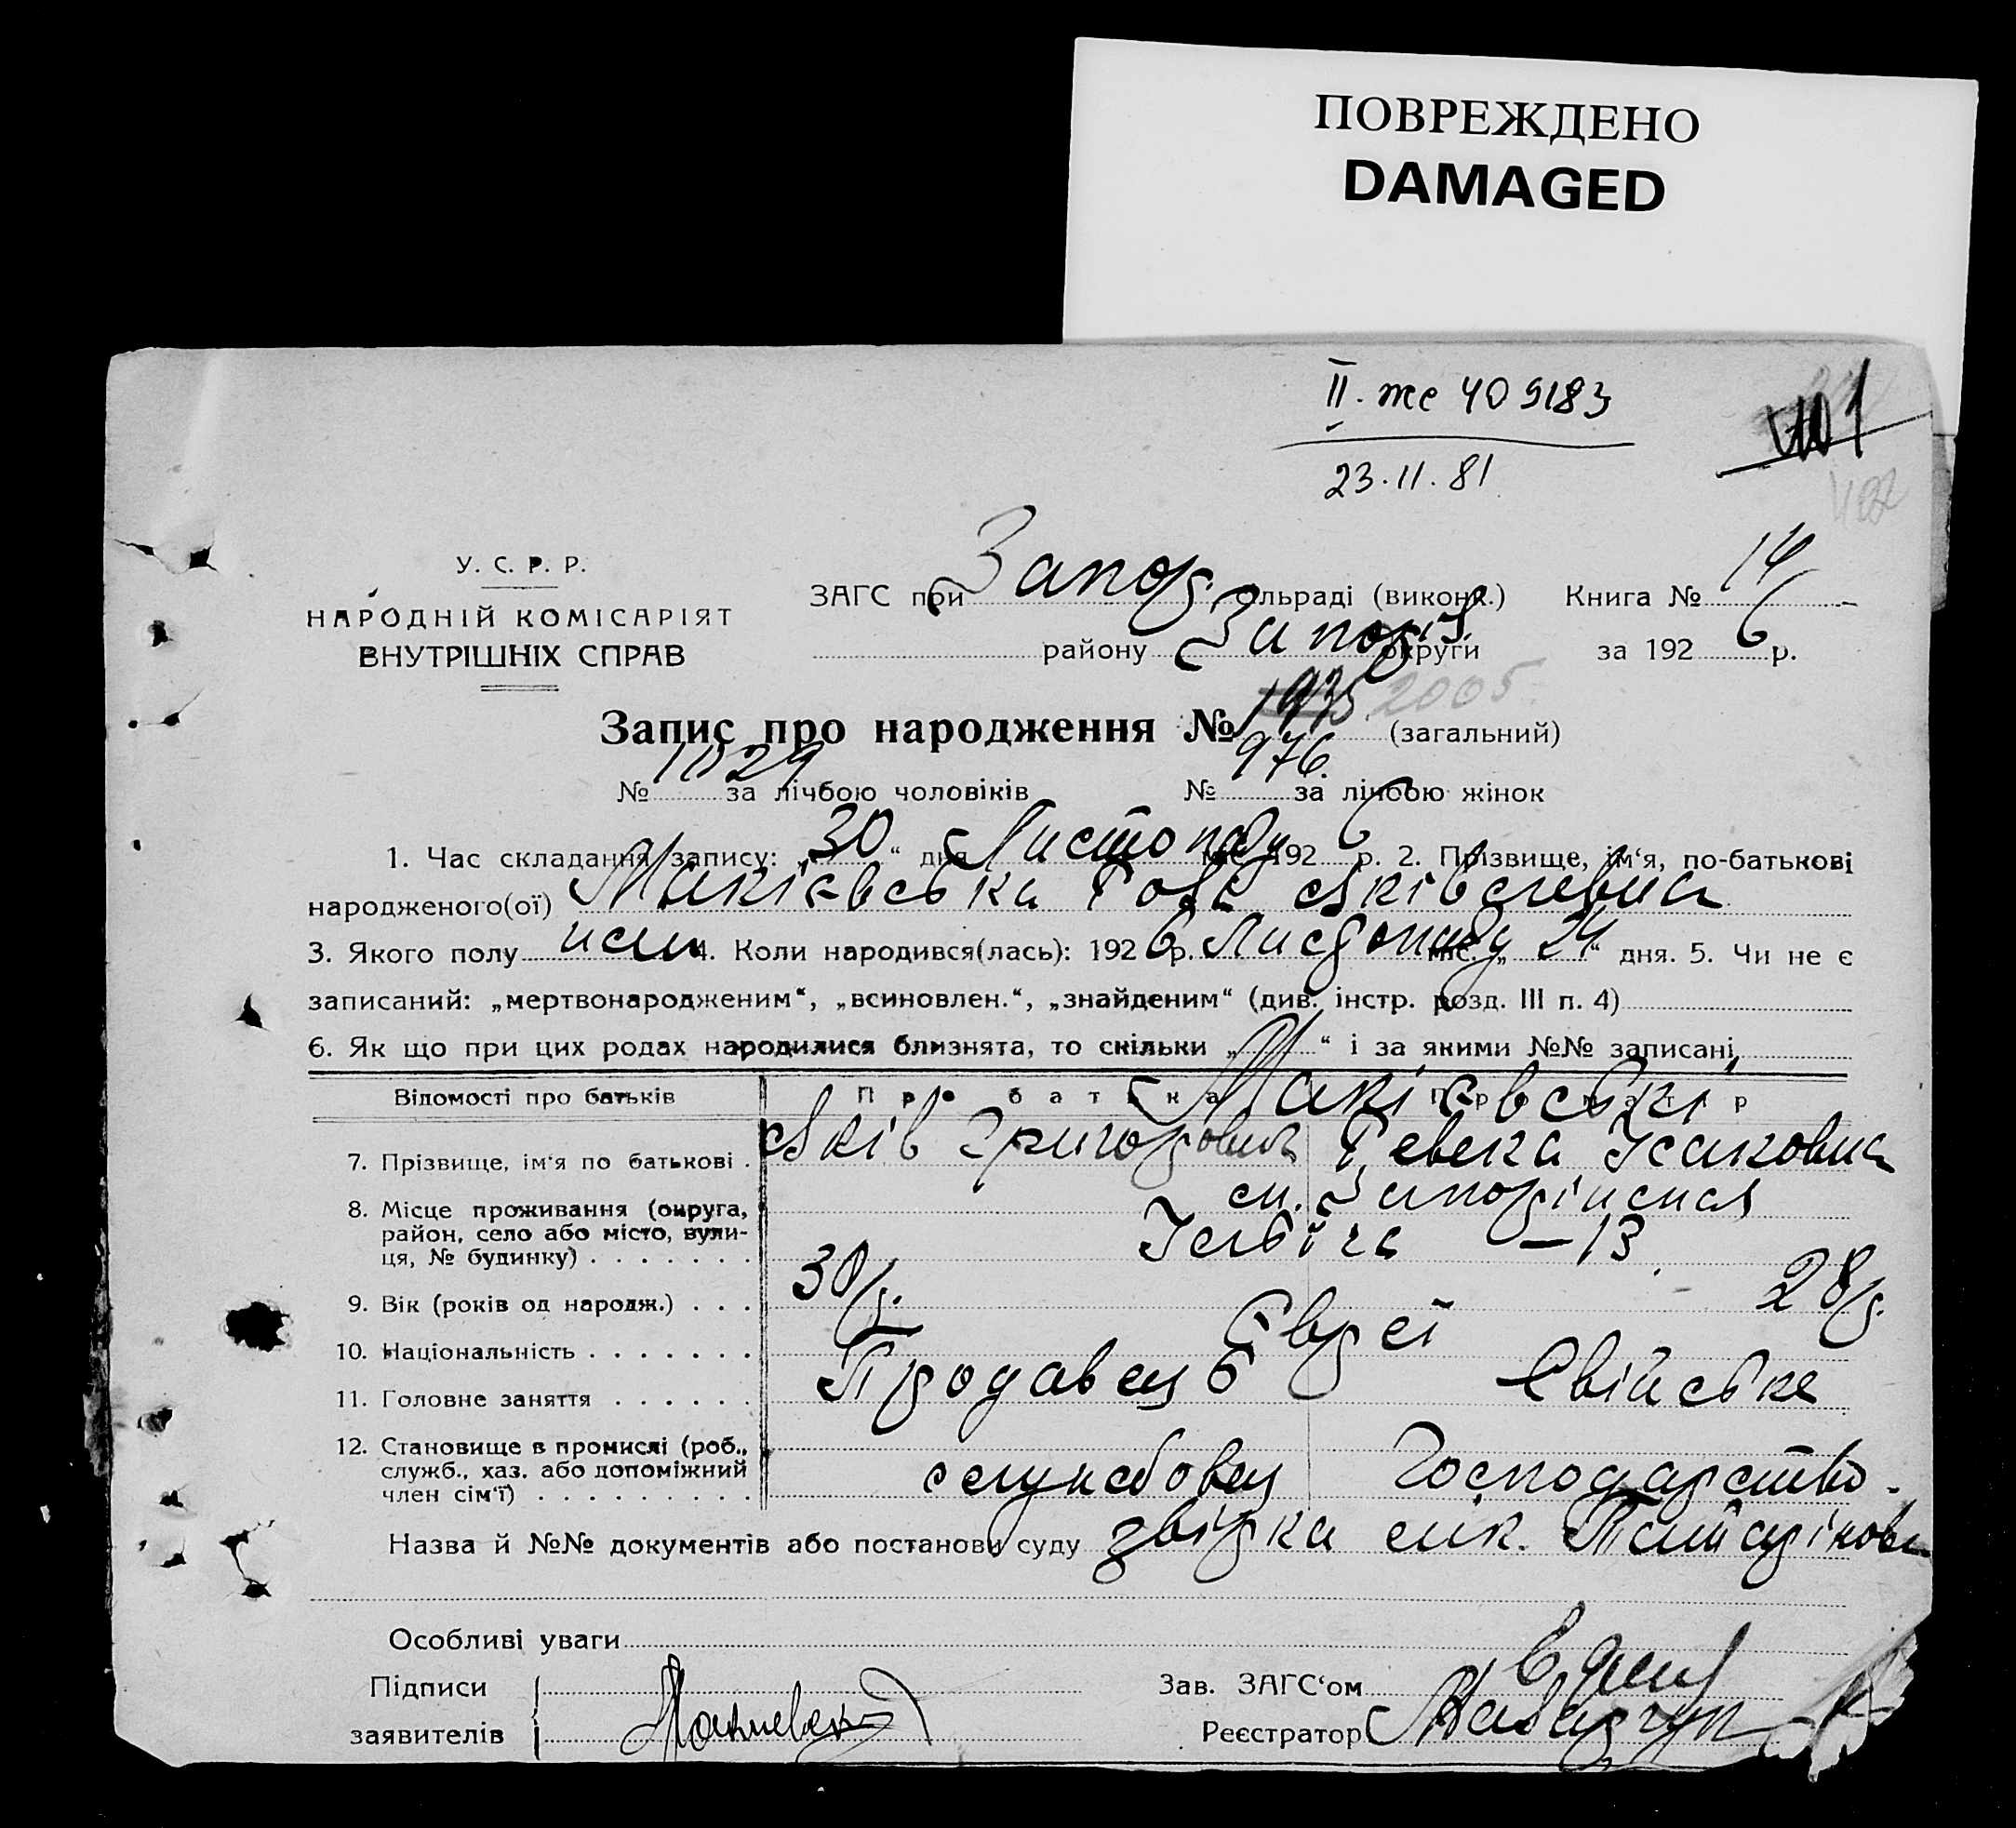 ПОВРЕЖДЕНО
DAMAGED
II. же 409183
23.11.81
У. С. Р. Р.
НАРОДНІЙ КОМІСАРІЯТ
ВНУТРІШНІХ СПРАВ
ЗАГС при Запор. ольраді (виконк.) Книга № 14
району Запоріз. округи за 1926 р.
Запис про народження № 1975 2005 (загальний)
№ 1029 за лічбою чоловіків № 976. за лічбою жінок
1. Час складання запису: „30“ дня Листопаду міс. 1926 р. 2. Прізвище, ім‘я, по-батькові
народженого(ої) Макієвська Роза Яківлевна
3. Якого полу жен 4. Коли народився(лась): 1926 р. Листопаду міс. „24“ дня. 5. Чи не є
записаний: „мертвонародженим“, „всиновлен.“, „знайденим“ (див. інстр. розд. III п. 4)
6. Як що при цих родах народилися близнята, то скільки „ “ і за якими №№ записані
Відомості про батьків Про батька Про матір
Макієвські
7. Прізвище, ім‘я по батькові . Яків Григорович Ревека Ісаковна
8. Місце проживання (округа, район, село або місто, вулиця, № будинку) . . . . . . . м. Запоріжжя
— 13
9. Вік (років од народж.) . . . 30 р. 28 р.
10. Національність . . . . . . . Євреї
11. Головне заняття . . . . . . Продавець Свійське
12. Становище в промислі (роб., служб., хаз. або допоміжний член сім‘ї) . . . . . . . . . служебовец Господарство.
Назва й №№ документів або постанови суду звірка лік.
Особливі уваги
Підписи
заявителів
Зав. ЗАГС‘ом
Реєстратор